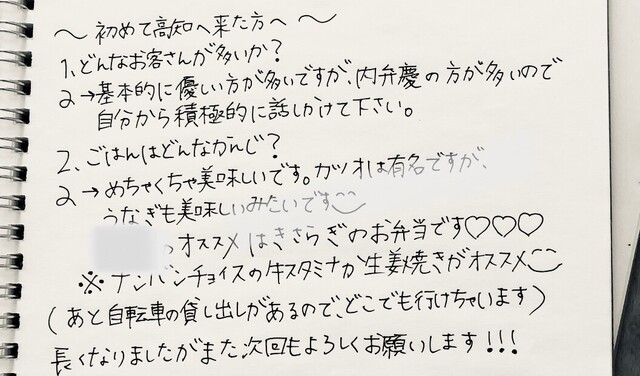 ～初めて高知へ来た方へ～
1、どんなお客さんが多いか？
2→基本的に優しい方が多いですが、内弁慶の方が多いので
自分から積極的に話しかけて下さい。
2、ごはんはどんなかんじ？
2→めちゃくちゃ美味しいです。カツオは有名ですが、
うなぎも美味しいみたいです
オススメはきさらぎのお弁当です♡♡♡
※ナンバンチョイスの牛スタミナか生姜焼きがオススメ
(あと自転車の貸し出しがあるので、どこでも行けちゃいます)
長くなりましたがまた次回もよろしくお願いします!!!